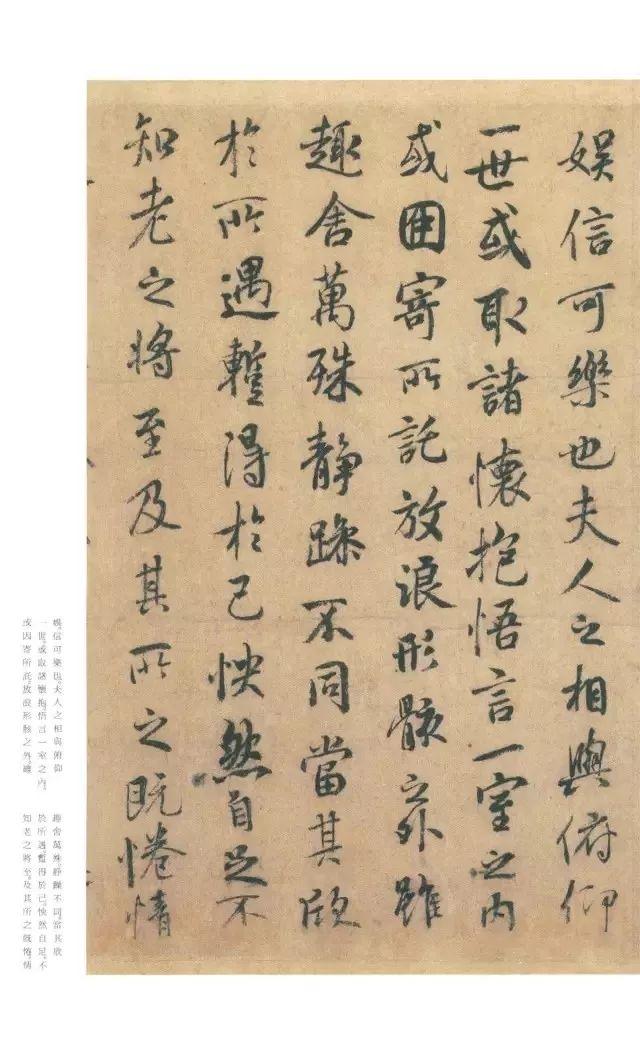 娛信可樂也夫人之相與俯仰
一世或取諸懷抱悟言一室之内
或因寄所託放浪形骸之外雖
趣舍萬殊静躁不同當其欣
於所遇蹔得於己怏然自足不
知老之將至及其所之既惓情
娛。信可樂也。夫人之相與俯仰
一世。或取諸懷抱。悟言一室之内。
或因寄所託。放浪形骸之外。雖
趣舍萬殊。靜躁不同。當其欣
於所遇。暫得於己。怏然自足。不
知老之將至。及其所之既惓。情